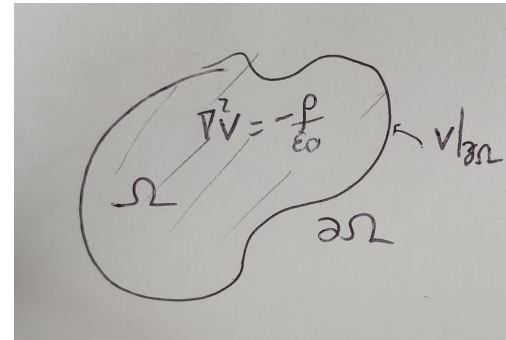 ∇²V = -ρ/ε₀
V|∂Ω
Ω
∂Ω